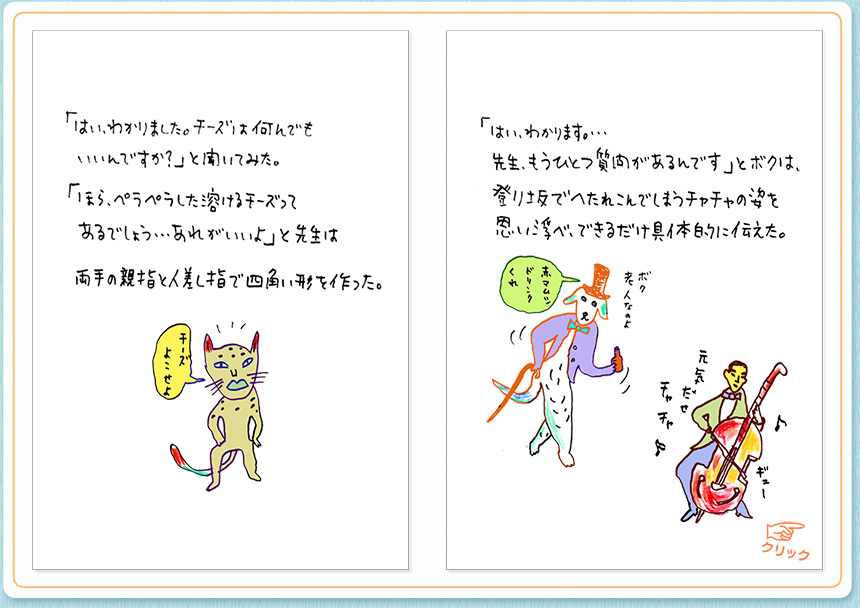 「はい、わかりました。チーズは何んでも
いいんですか?」と聞いてみた。
「ほら、ペラペラした溶けるチーズって
あるでしょう…あれがいいよ」と先生は
両手の親指と人差し指で四角い形を作った。
チーズ
よこせよ
「はい、わかります。…
先生、もうひとつ質問があるんです」とボクは、
登り坂でへたれこんでしまうチャチャの姿を
思い浮べ、できるだけ具体的に伝えた。
赤マムシ
ドリンク
くれ
ボク
老人なのよ
元気
だせ
チャチャ
ギュー
クリック